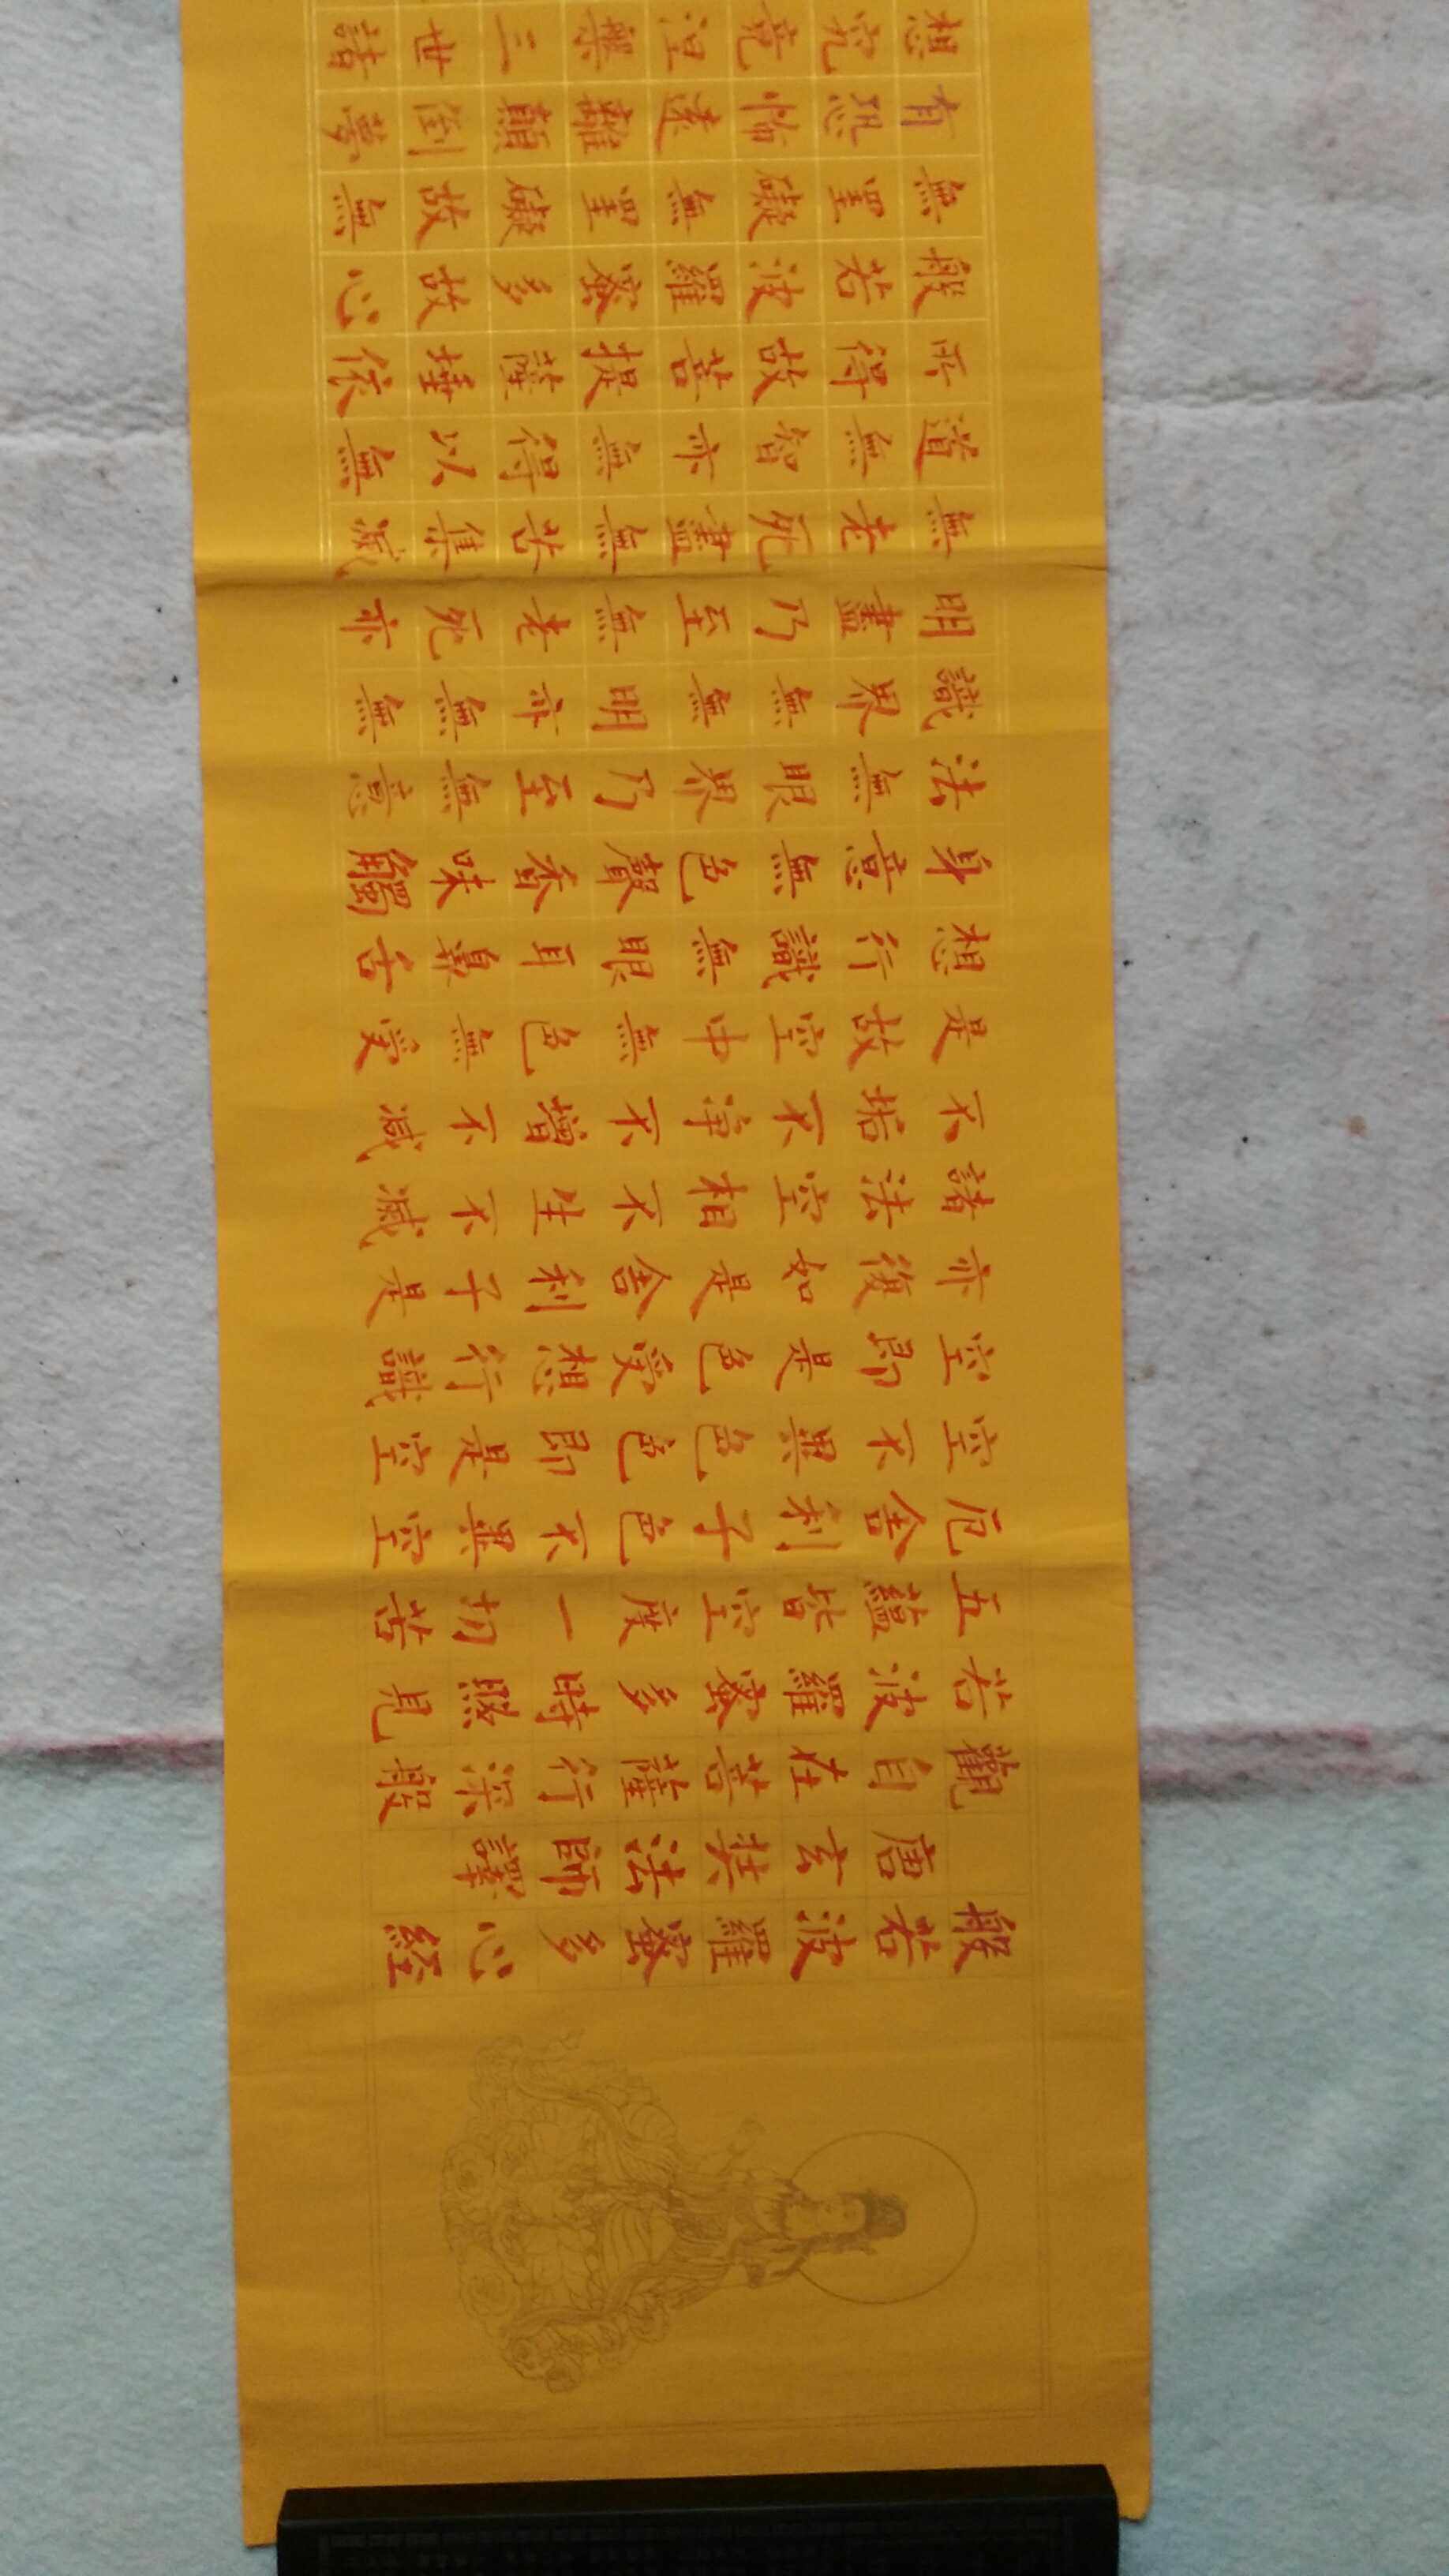 般若波羅蜜多心経
唐玄奘法師譯
觀自在菩薩行深般
若波羅蜜多時照見
五蘊皆空度一切苦
厄舍利子色不異空
空不異色色即是空
空即是色受想行識
亦復如是舍利子是
諸法空相不生不滅
不垢不淨不增不減
是故空中無色無受
想行識無眼耳鼻舌
身意無色聲香味觸
法無眼界乃至無意
識界無無明亦無無
明盡乃至無老死亦
無老死盡無苦集滅
道無智亦無得以無
所得故菩提薩埵依
般若波羅蜜多故心
無罣礙無罣礙故無
有恐怖遠離顛倒夢
想究竟涅槃三世諸